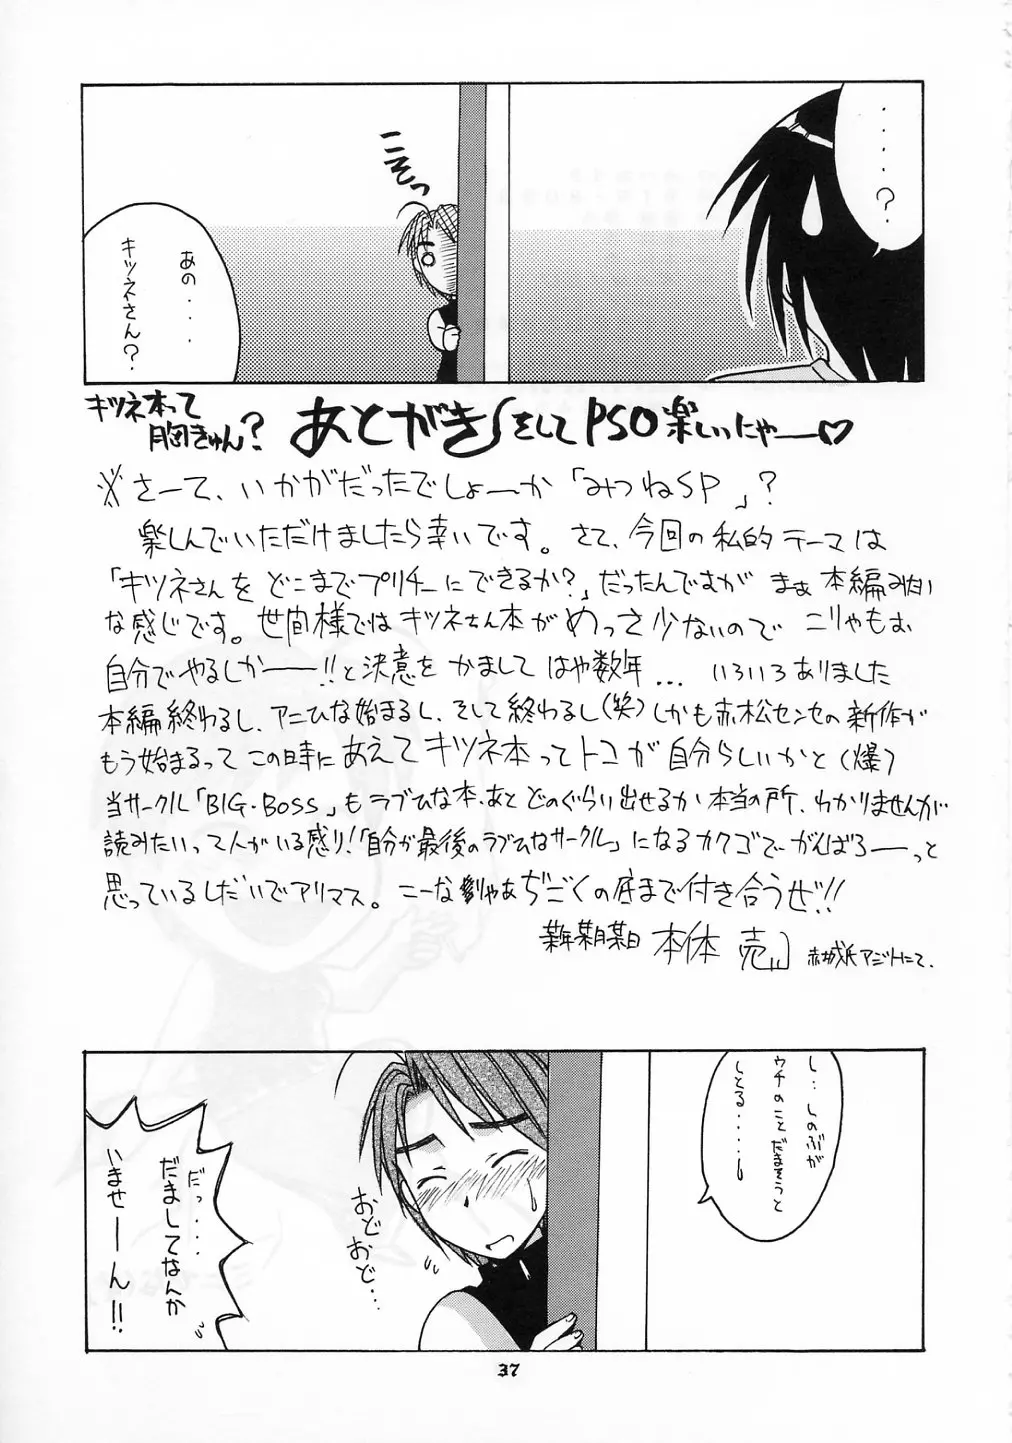 ・・・・・？
こそっ
あの・・・
キツネさん？
キツネ本って
胸きゅん？
あとがき
そしてPSO楽しいにゃー♡
※さーて、いかがだったでしょーか「みつねSP」？
楽しんでいただけましたら幸いです。さて、今回の私的テーマは
「キツネさんをどこまでプリチーにできるか？」だったんですが まぁ本編みたい
な感じです。世間様ではキツネさん本がめっさ少ないので こりゃもお
自分でやるしかーー!!と決意をかましてはや数年... いろいろありました
本編終わるし、アニひな始まるし、そして終わるし(笑)しかも赤松センセの新作が
もう始まるってこの時にあえてキツネ本ってトコが自分らしいかと(爆)
当サークル「BIG・BOSS」もラブひな本、あとどのぐらい出せるか本当の所、わかりませんが
読みたいって人がいる限り!「自分が最後のラブひなサークル」になるカクゴでーがんばろーーっと
思っているしだいでアリマス。こーなりゃあぢごくの底まで付き合うぜ!!
某年某月某日 本体 売 赤城氏アジトにて.
し...しのぶが
ウチのことだまそうと
してる.....
おどおど...
だっ....
だましてなんか
いませーん!!
37